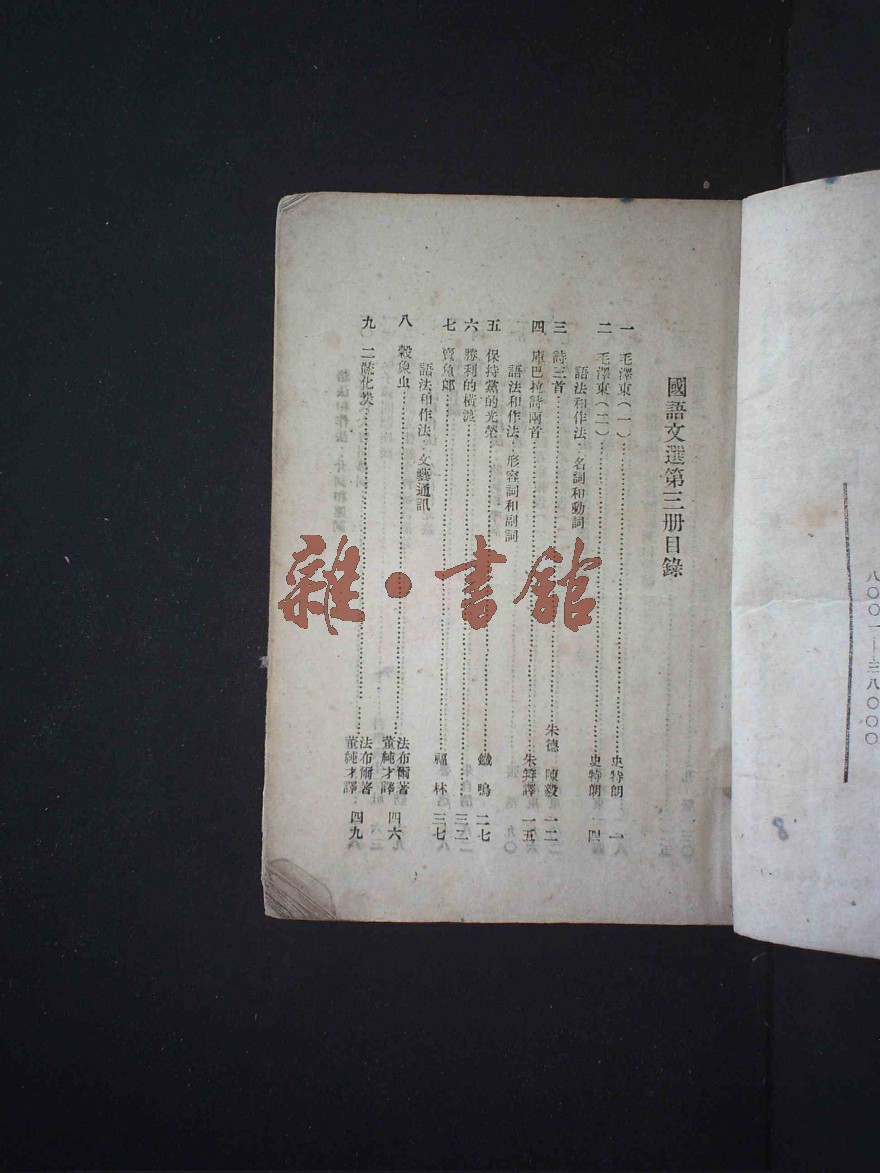 國語文選第三册目錄
一 毛澤東(一)……史特朗 一
二 毛澤東(二)……史特朗 一四
語法和作法:名詞和動詞
三 詩三首……朱德 陳毅 一二
四 庫巴拉詩兩首……朱笄譯 一五
語法和作法:形容詞和副詞
五 保持黨的光榮……鐵鳴 二七
六 勝利的橫渡……三二
七 賣魚郎……福林 三七
語法和作法:文藝通訊
八 穀象虫……法布爾著 董純才譯 四六
九 二疏化螟……法布爾著 董純才譯 四九
八〇〇一—三八〇〇〇
8
雜·書館